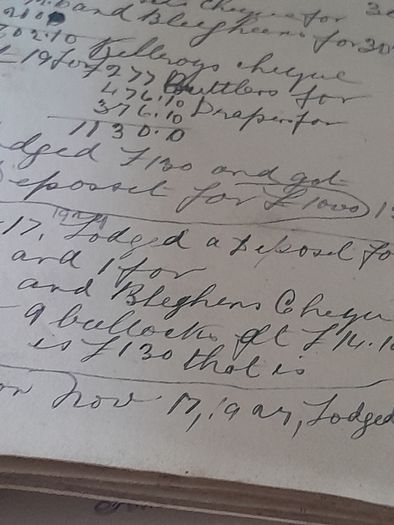 cheque for 30
and Bleghens for 30
202.10 Kellroys cheque
£19 for 277 Buttlers for
476.10 Drapers for
376.10
1130.0
odged £130 and got
Deposset for £1000
17, Lodged a Deposel fo
and 1 for
and Bleghens Cheque
9 bullocks at £14.10
is £130 that is
on Nov 17, Lodged